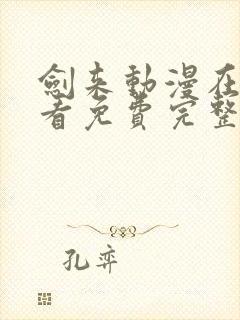 劍来動漫在
看免費完整
孔弈